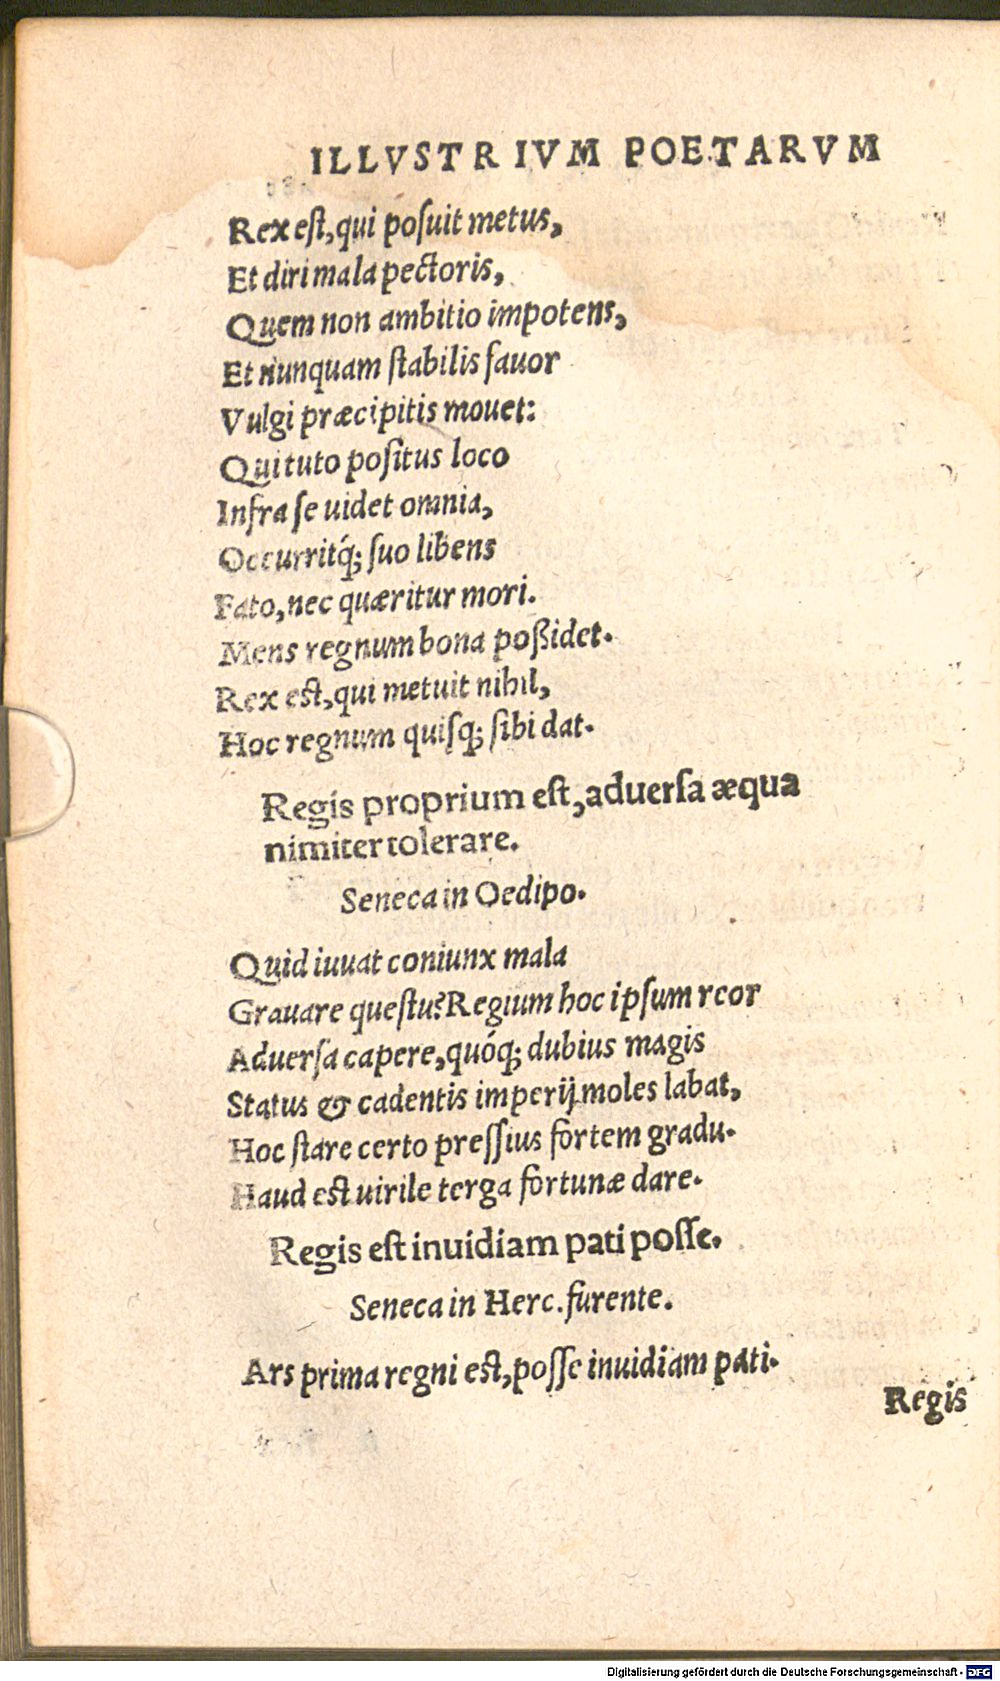 ILLVSTRIVM POETARVM
Rex eſt, qui poſuit metus,
Et diri mala pectoris,
Quem non ambitio impotens,
Et nunquam ſtabilis fauor
Vulgi præcipitis mouet:
Qui tuto poſitus loco
Infra ſe uidet omnia,
Occurritq́; ſuo libens
Fato, nec quæritur mori.
Mens regnum bona poßidet.
Rex eſt, qui metuit nihil,
Hoc regnum quiſq; ſibi dat.
Regis proprium eſt, aduerſa æqua
nimiter tolerare.
Seneca in Oedipo.
Quid iuuat coniunx mala
Grauare queſtu? Regium hoc ipſum reor
Aduerſa capere, quóq; dubius magis
Status & cadentis imperij moles labat,
Hoc ſtare certo preſſius fortem gradu.
Haud eſt uirile terga fortunæ dare.
Regis eſt inuidiam pati poſſe.
Seneca in Herc. furente.
Ars prima regni eſt, poſſe inuidiam pati.
Regis
Digitalisierung gefördert durch die Deutsche Forschungsgemeinschaft - DFG